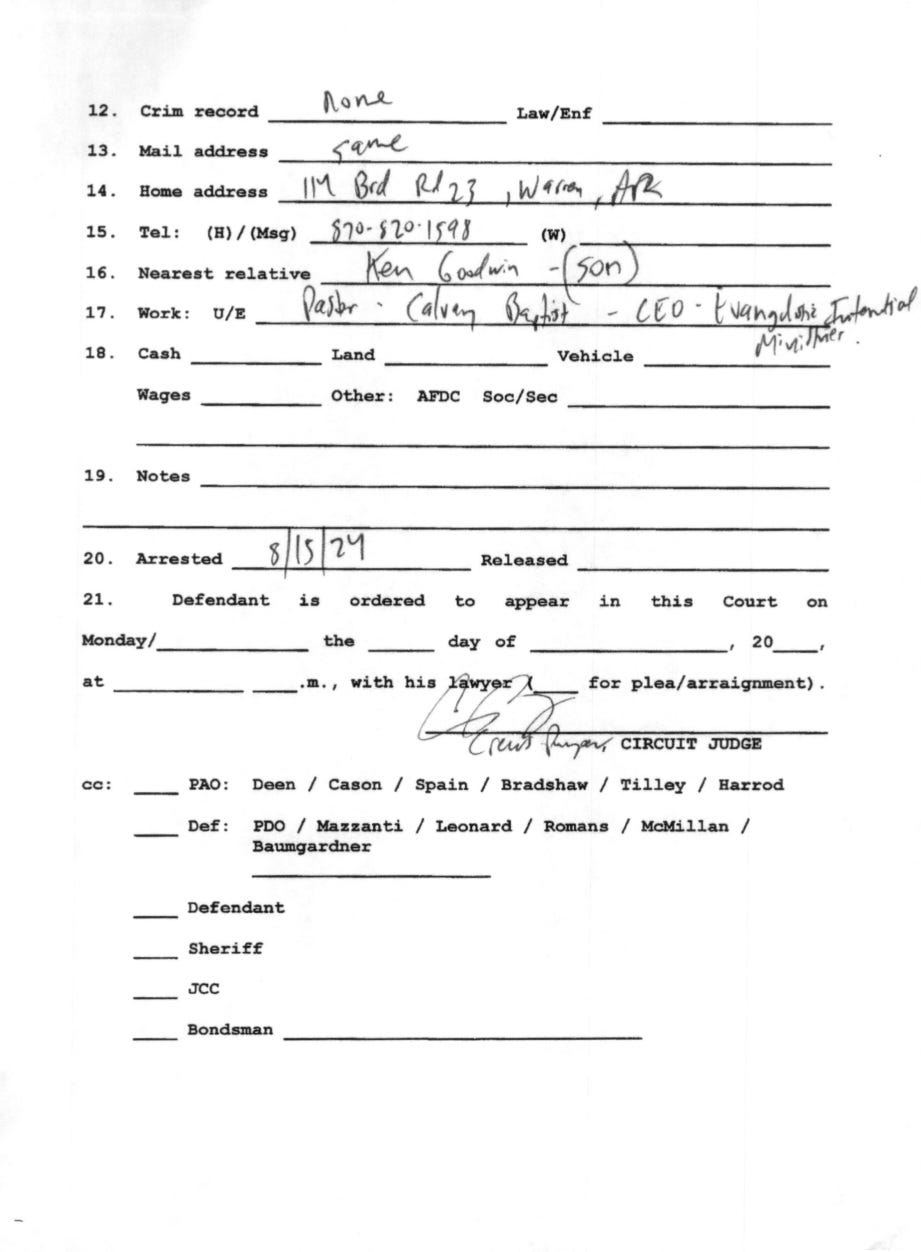 12. Crim record None Law/Enf
13. Mail address same
14. Home address 114 Brd Rd 23, Warren, ARK
15. Tel: (H)/(Msg) 870-820-1598 (W)
16. Nearest relative Ken Goodwin - (son)
17. Work: U/E Pastor - Calvary Baptist - CEO -
18. Cash Land Vehicle
Wages Other: AFDC Soc/Sec
19. Notes
20. Arrested 8/15/24 Released
21. Defendant is ordered to appear in this Court on
Monday/ the day of , 20 ,
at .m., with his lawyer ( for plea/arraignment).
CIRCUIT JUDGE
cc: PAO: Deen / Cason / Spain / Bradshaw / Tilley / Harrod
Def: PDO / Mazzanti / Leonard / Romans / McMillan /
Baumgardner
Defendant
Sheriff
JCC
Bondsman